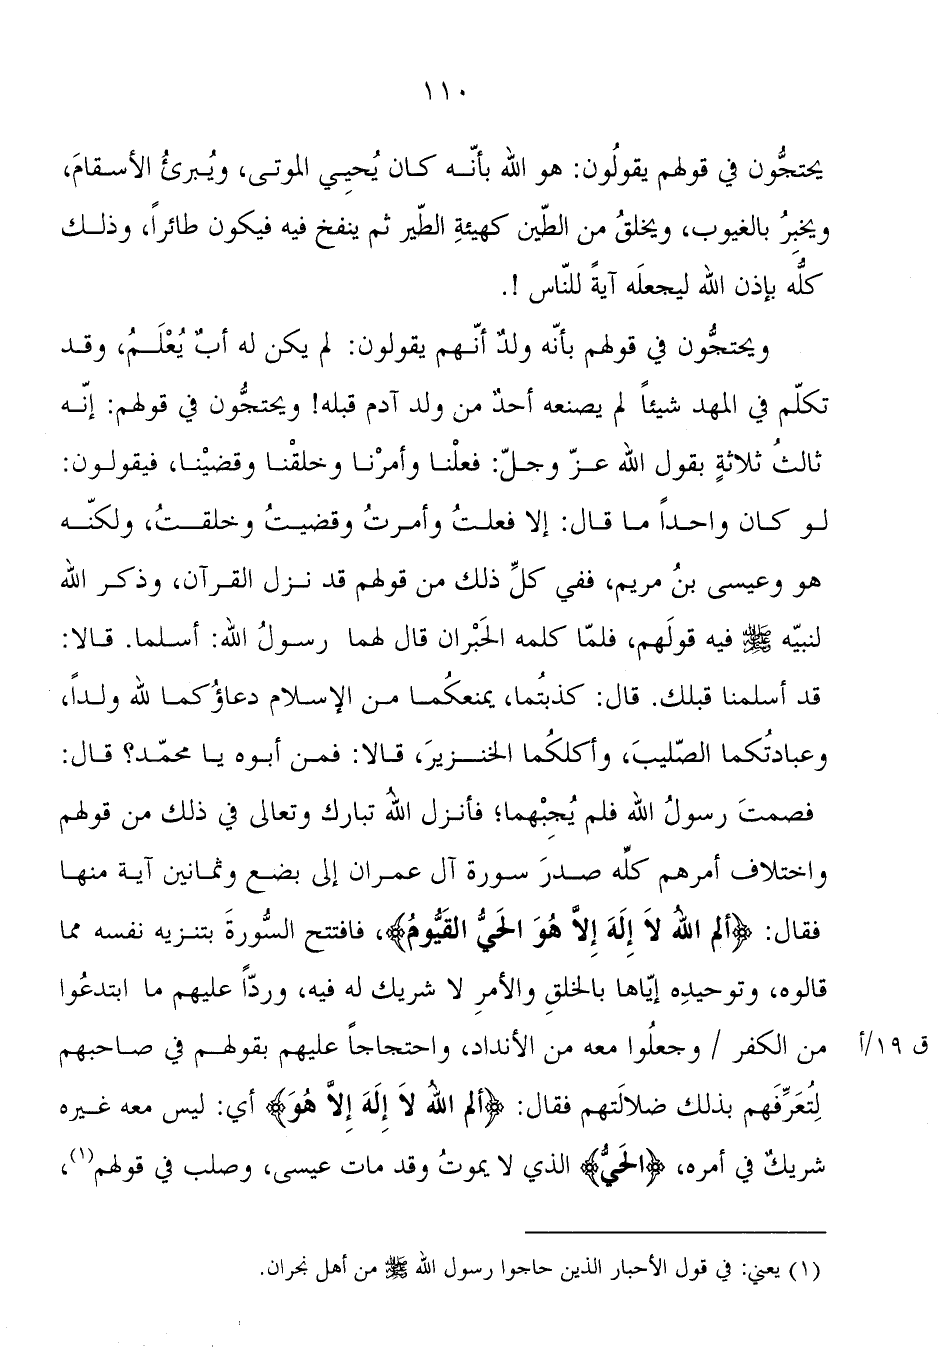 ١١٠
يحتجُّون في قولهم يقولُون: هو الله بأنّه كان يُحيِي الموتى، ويُبرئُ الأسقامَ،
ويخبِرُ بالغيوب، ويخلقُ من الطّين كهيئةِ الطّير ثم ينفخ فيه فيكون طائراً، وذلك
كلُّه بإذن الله ليجعلَه آيةً للنّاس !.
ويحتجُّون في قولهم بأنّه ولدٌ أنّهم يقولون: لم يكن له أبٌ يُعْلَمُ، وقد
تكلّم في المهد شيئاً لم يصنعه أحدٌ من ولد آدم قبله! ويحتجُّون في قولهم: إنّه
ثالثُ ثلاثةٍ بقول الله عزّ وجلّ: فعلْنا وأمرْنا وخلقْنا وقضيْنا، فيقولون:
لو كان واحداً ما قال: إلا فعلتُ وأمرتُ وقضيتُ وخلقتُ، ولكنّه
هو وعيسى بنُ مريم، ففي كلِّ ذلك من قولهم قد نزل القرآن، وذكر الله
لنبيّه ﷺ فيه قولَهم، فلمّا كلمه الحَبْران قال لهما رسولُ الله: أسلما. قالا:
قد أسلمنا قبلك. قال: كذبتُما، يمنعكُما من الإسلام دعاؤُكما لله ولداً،
وعبادتُكما الصّليبَ، وأكلكُما الخنزيرَ، قالا: فمن أبوه يا محمّد؟ قال:
فصمتَ رسولُ الله فلم يُجِبْهما؛ فأنزل اللهُ تبارك وتعالى في ذلك من قولهم
واختلاف أمرهم كلِّه صدرَ سورة آل عمران إلى بضع وثمانين آية منها
فقال: ﴿ألم اللهُ لاَ إِلَهَ إِلاَّ هُوَ الحَيُّ القَيُّومُ﴾، فافتتح السُّورةَ بتنزيه نفسه مما
قالوه، وتوحيدِه إيّاها بالخلقِ والأمرِ لا شريك له فيه، وردّاً عليهم ما ابتدعُوا
من الكفر / وجعلُوا معه من الأنداد، واحتجاجاً عليهم بقولهم في صاحبهم ق ١٩/أ
لِتُعَرِّفَهم بذلك ضلالَتهم فقال: ﴿ألم اللهُ لاَ إِلَهَ إِلاَّ هُوَ﴾ أي: ليس معه غيره
شريكٌ في أمره، ﴿الحَيُّ﴾ الذي لا يموتُ وقد مات عيسى، وصلب في قولهم(١)،
(١) يعني: في قول الأحبار الذين حاجوا رسول الله ﷺ من أهل نجران.